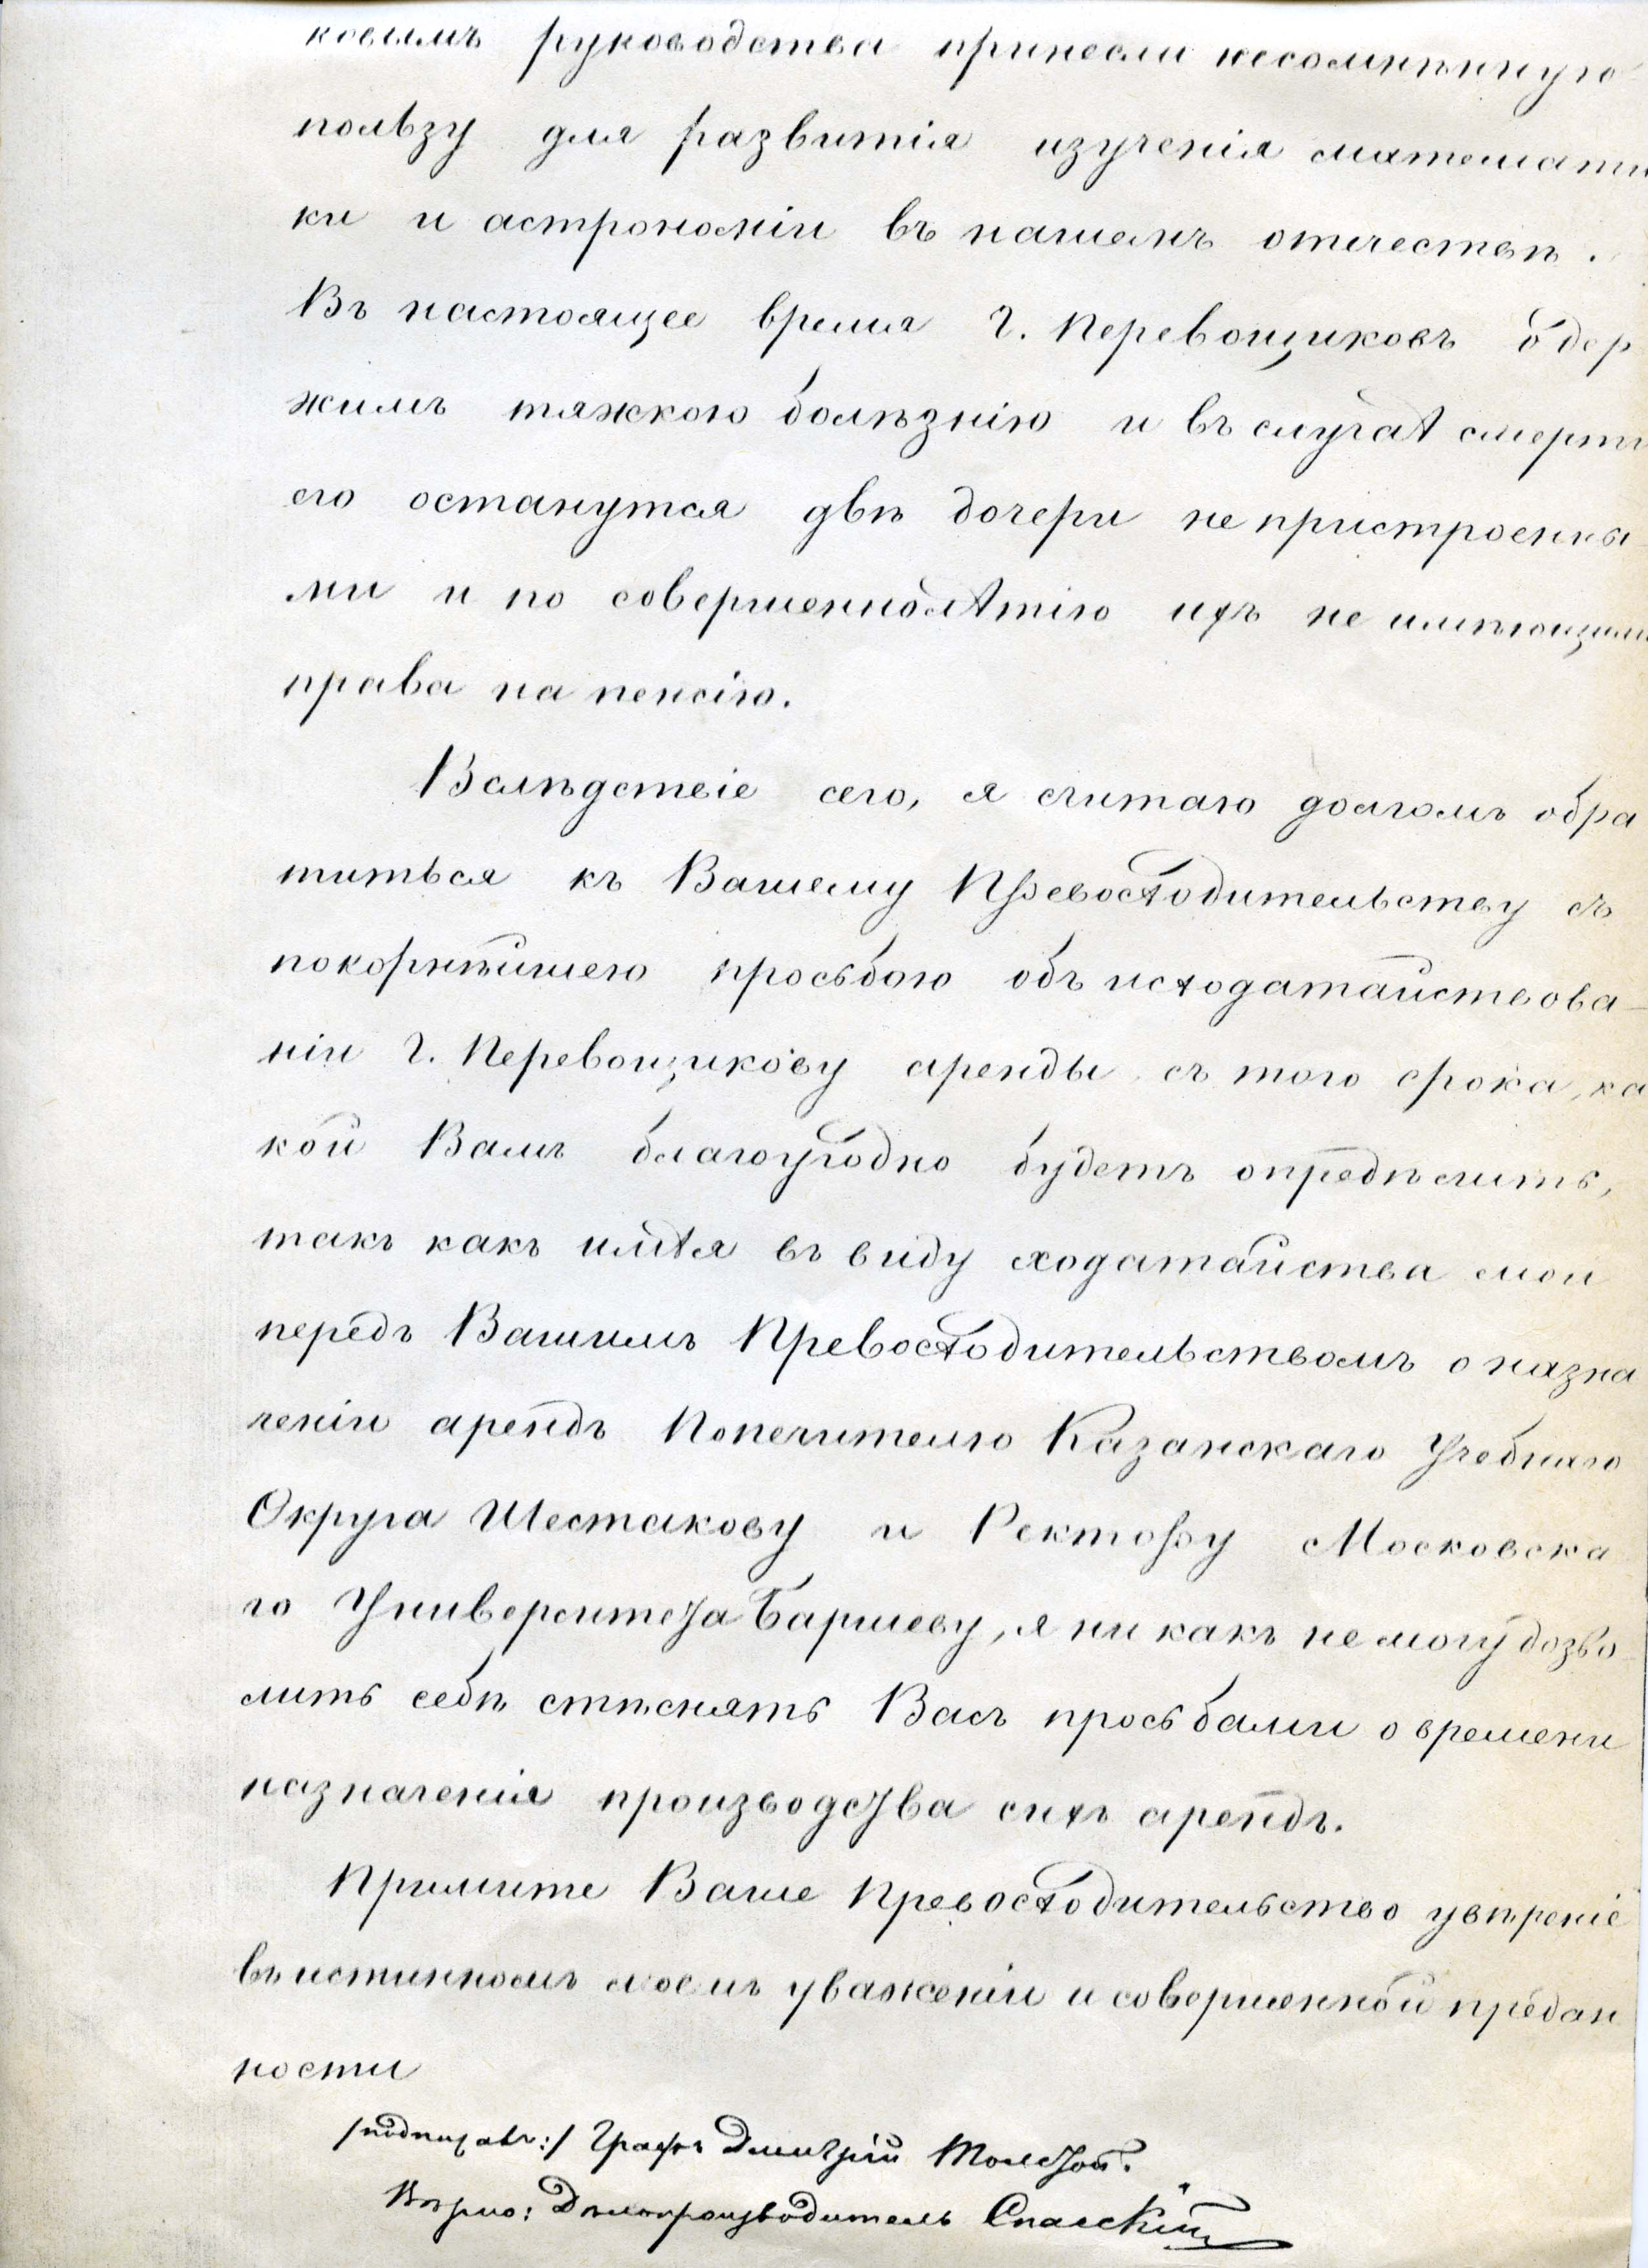 ковымъ руководства принесли несомнѣнную
пользу для развитія изученія математи
ки и астрономіи въ нашемъ отечествѣ.
Въ настоящее время Г. Перевощиковъ одер
жимъ тяжкою болѣзнію и въ случаѣ смерти
его останутся двѣ дочери не пристроенны-
ми и по совершеннолѣтію ихъ не имѣющими
права на пенсію.
Вслѣдствіе сего, я считаю долгомъ обра
титься къ Вашему Превосходительству съ
покорнѣйшею просьбою объ исходатайствова-
ніи Г. Перевощикову аренды съ того срока, ка
кой Вамъ благоугодно будетъ опредѣлить,
такъ какъ имѣя въ виду ходатайства мои
передъ Вашимъ Превосходительствомъ о назна
ченіи арендъ Попечителю Казанскаго Учебнаго
Округа Шестакову и Ректору Московска
го Университета Баршеву, я ни какъ не могу дозво
лить себѣ стѣснять Васъ просьбами о времени
назначенія производства сихъ арендъ.
Примите Ваше Превосходительство увѣреніе
въ истинномъ моемъ уваженіи и совершенной предан
ности
/подписалъ:/ Графъ Дмитрій Толстой.
Вѣрно: Дѣлопроизводитель Спасскій